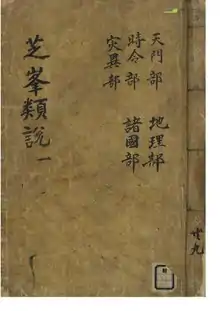 天門部 地理部
時令部 諸國部
灾異部
芝峯類說 一
共九